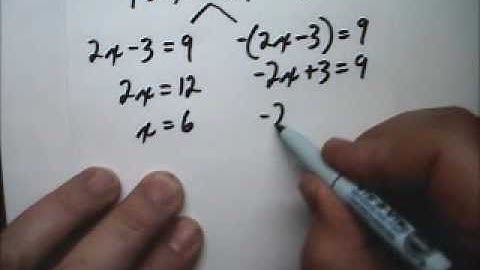 2x-3=9
-(2x-3)=9
2x=12
-2x+3=9
x=6
-2